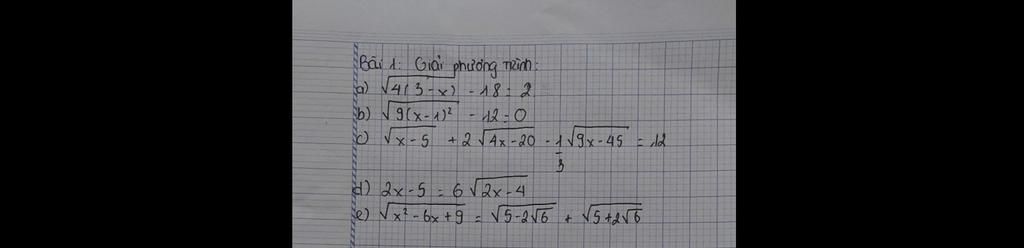 Bài 1: Giải phương trình:
a) √4(3-x) - 18 = 2
b) √9(x-1)² - 12 = 0
c) √x-5 + 2√4x-20 - 1/3 √9x-45 = 12
d) 2x-5 = 6√2x-4
e) √x²-6x+9 = √5-2√6 + √5+2√6